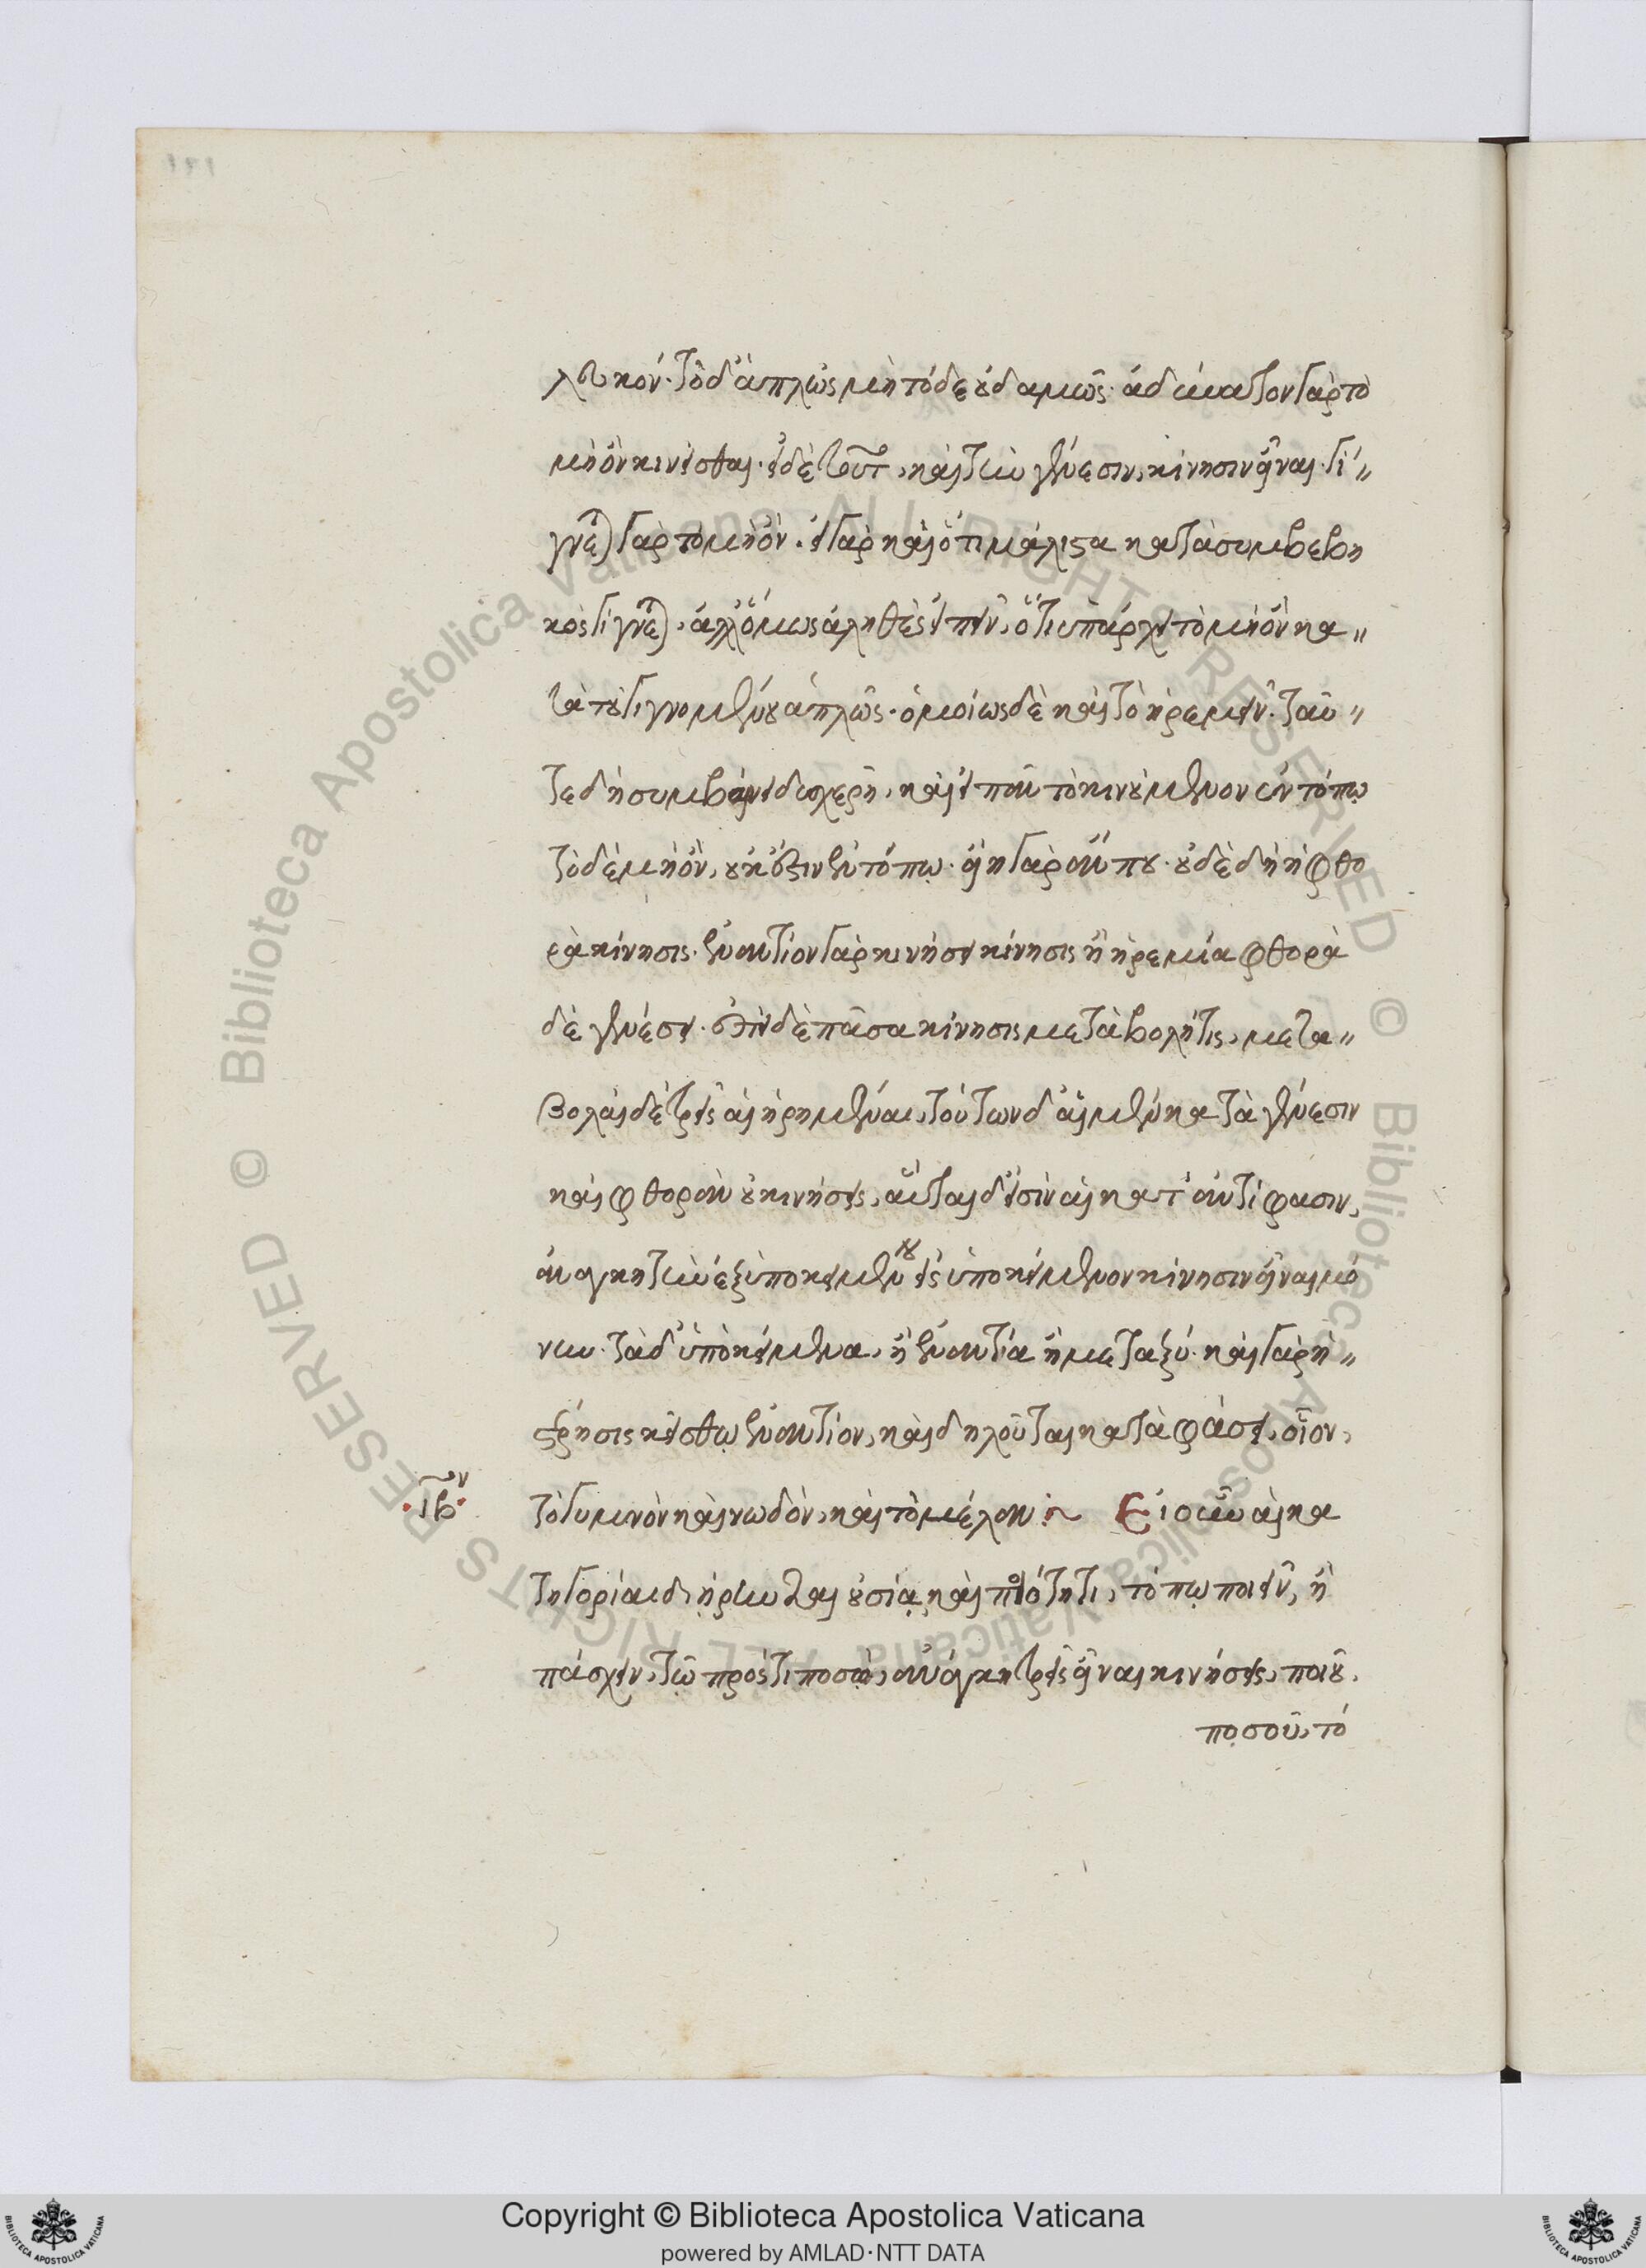 λευκόν· τὸ δ' ἁπλῶς μὴ τόδε οὐδαμῶς· ἀδύνατον γὰρ τὸ
μὴ ὂν κινεῖσθαι· εἰ δὲ τοῦτ, καὶ τὴν γένεσιν, κίνησιν εἶναι· γί"
γνεται γὰρ τὸ μὴ ὄν· εἰ γὰρ καὶ ὅτι μάλιστα κατὰ συμβεβη
κὸς γίγνεται, ἀλλ' ὅμως ἀληθὲς εἰπεῖν, ὅτι ὑπάρχει τὸ μὴ ὂν κα"
τὰ τοῦ γιγνομένου ἁπλῶς· ὁμοίως δὲ καὶ τὸ ἠρεμεῖν· ταῦ"
τε δὴ συμβαίνει δυσχερῆ, καὶ εἰ πᾶν τὸ κινούμενον ἐν τόπῳ
τὸ δὲ μὴ ὄν, οὐκ ἔστιν ἐν τόπῳ· εἴη γὰρ ἄν που· οὐδὲ δὴ ἡ φθο
ρὰ κίνησις· ἐναντίον γὰρ κινήσει κίνησις ἢ ἠρεμία φθορὰ
δὲ γενέσει· ἐπεὶ δὲ πᾶσα κίνησις μεταβολή τις, μετα"
βολαὶ δὲ τρεῖς αἱ εἰρημέναι, τούτων δ' αἱ μὲν κατὰ γένεσιν
καὶ φθορὰν οὐ κινήσεις, αὗται δ' εἰσὶν αἱ κατ' ἀντίφασιν,
ἀνάγκη τὴν ἐξ ὑποκειμένου εἰς ὑποκείμενον κίνησιν εἶναι μό
νην· τὰ δ' ὑποκείμενα, ἢ ἐναντία ἢ μεταξύ· καὶ γὰρ ἡ"
στέρησις κείσθω ἐναντίον, καὶ δηλοῦται καταφάσει, οἷον,
·ιβον· τὸ γυμνὸν καὶ νωδὸν, καὶ τὸ μέλαν :~ Εἰ οὖν αἱ κα
τηγορίαι διῄρηνται οὐσίᾳ, καὶ ποιότητι, τόπῳ ποιεῖν, ἢ
πάσχειν, τῷ πρός τι ποσῷ, ἀνάγκη τρεῖς εἶναι κινήσεις, ποιοῦ,
ποσοῦ, τό
Copyright © Biblioteca Apostolica Vaticana
powered by AMLAD·NTT DATA
© Biblioteca Apostolica Vaticana ALL RIGHTS RESERVED © Biblioteca Apostolica Vaticana ALL RIGHTS RESERVED